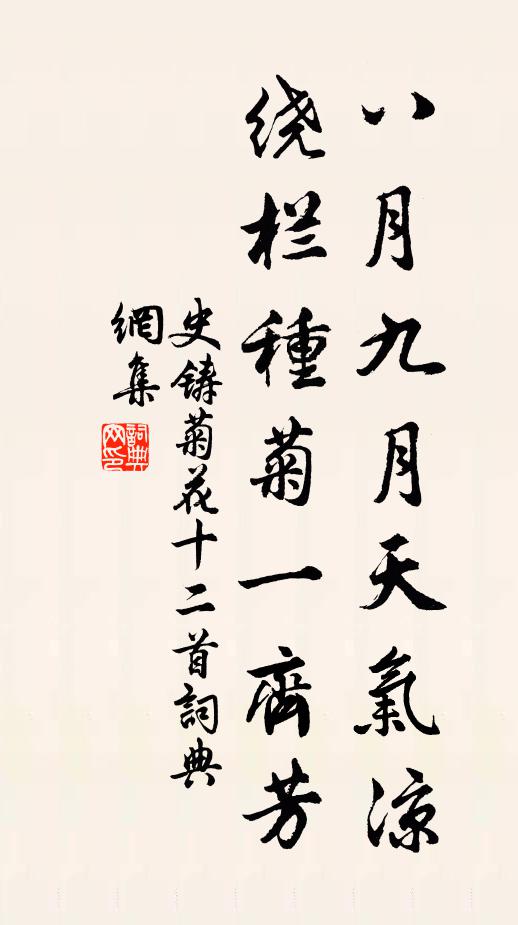 八月九月天氣凉
绕栏種菊一齊芳
史鑄菊花十二首詞典
網集
詞典
网印